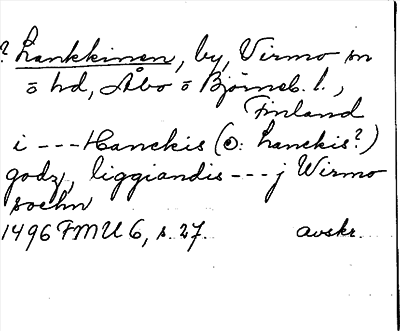 ? Lankkinen, by, Virmo sn
o hd, Åbo o Björneb. l.,
Finland
i --- Hanckis (ɔ: Lanckis?)
godz, liggiandis --- j Wirmo
sochn
1496 FMU 6, s. 27. avskr.